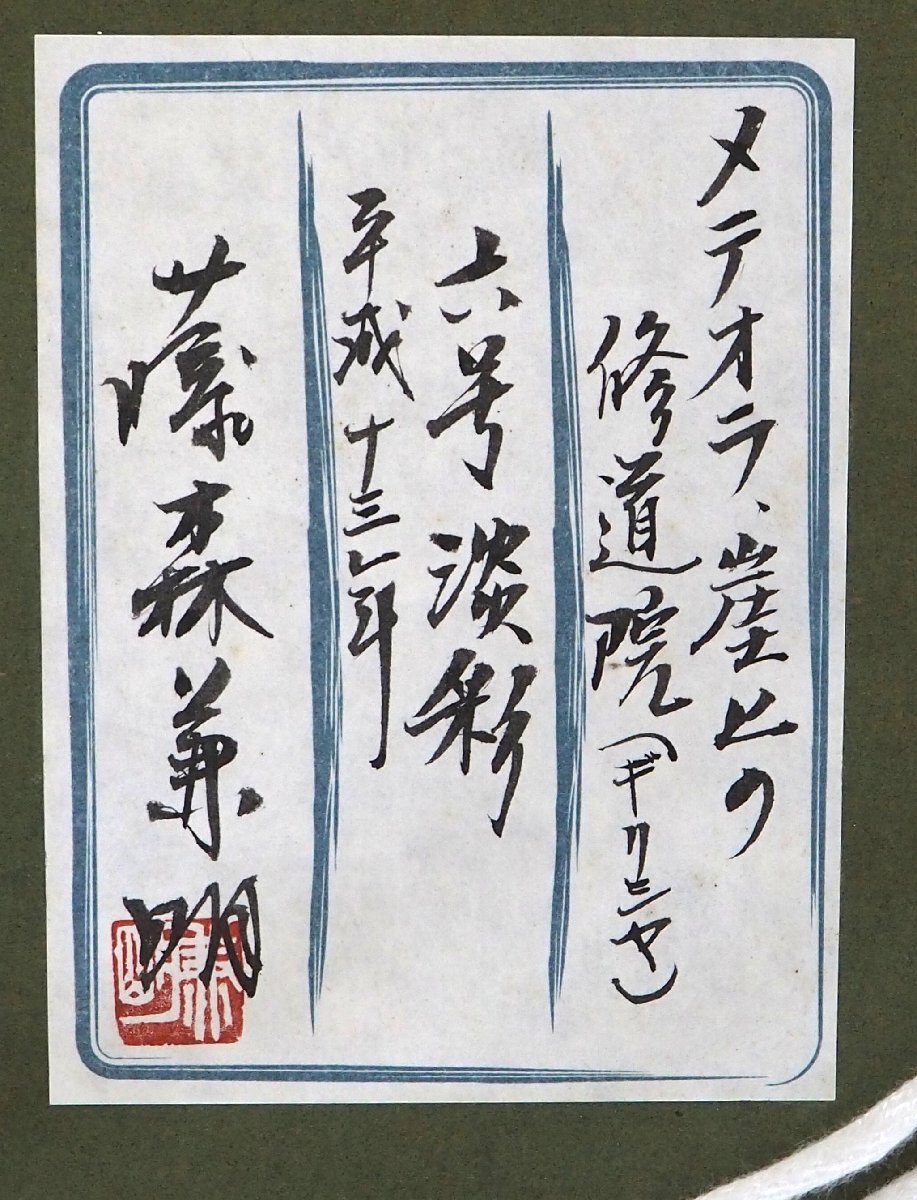 メテオラ、崖上の
修道院(ギリシヤ)
六号 淡彩
平成十三年
藤森兼明